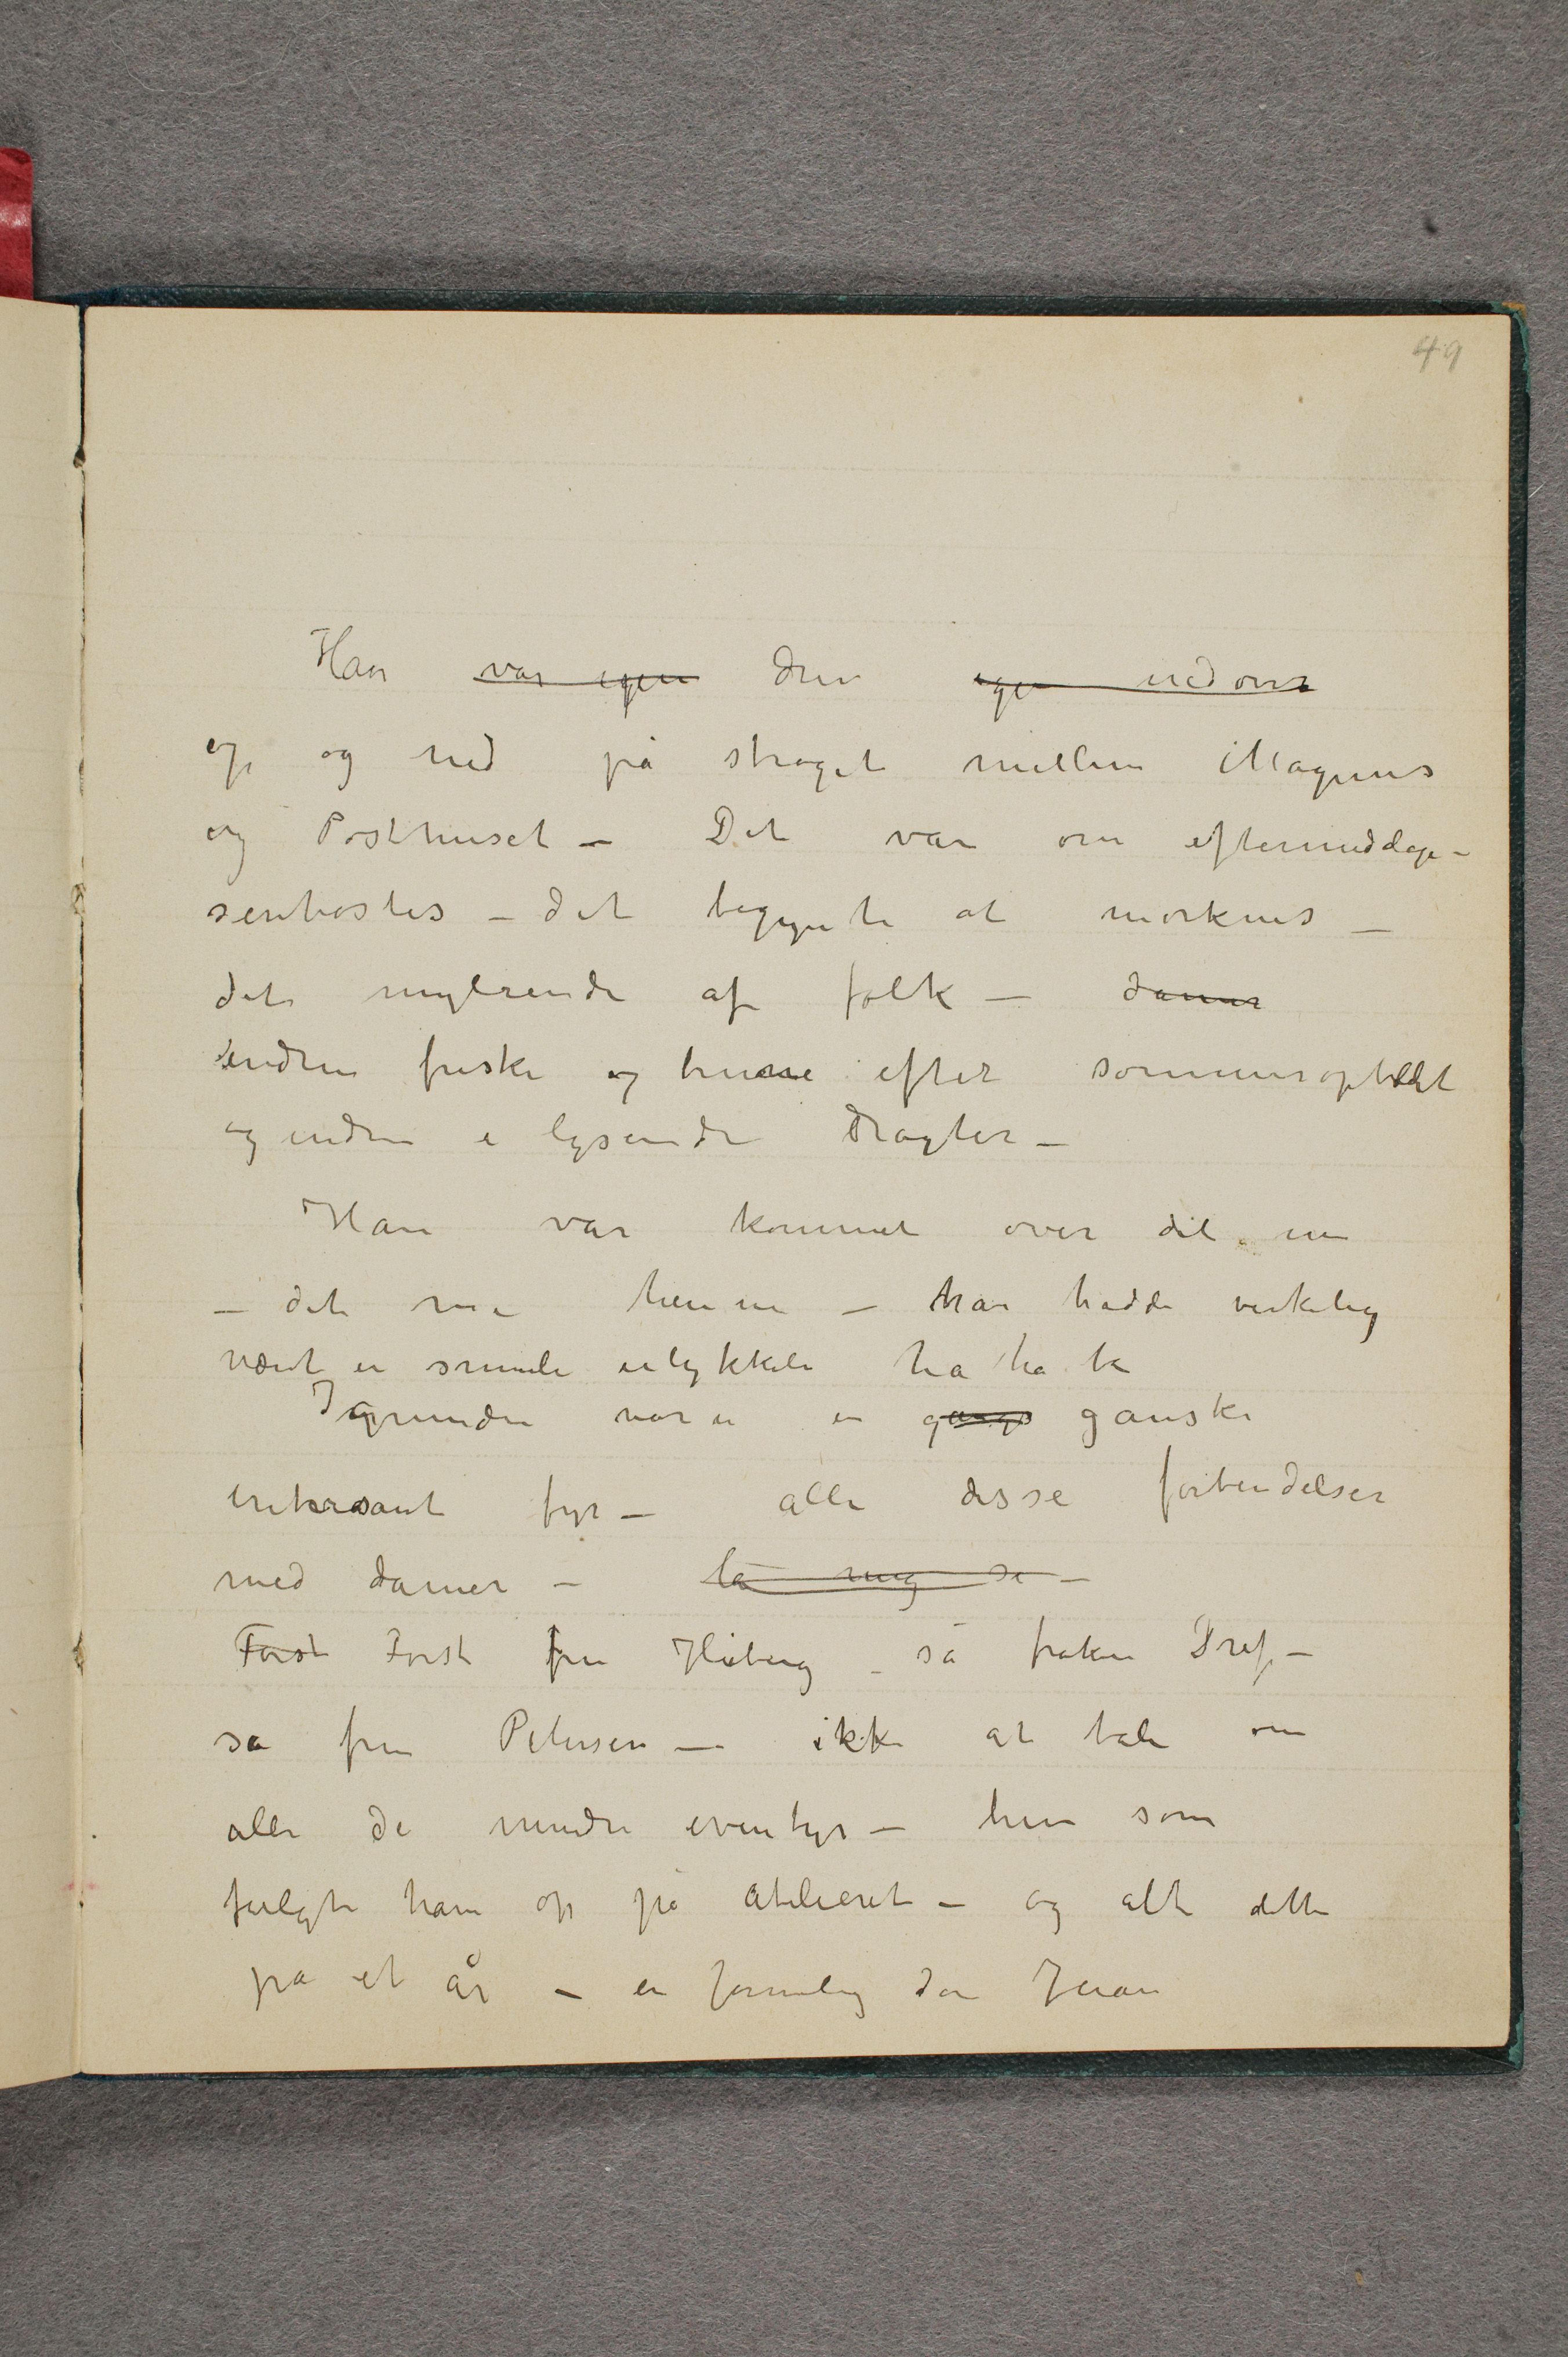 49
Han var igen drev igen nedover
op og ned på strøget mellem Magnus
og Posthuset – Det var om eftermiddagen
senhøstes – det begynte at mørknes –
det myldrende af folk – damer
endnu friske og brune efter sommeropholdet
og endnu i lysende dragter –
Han var kommet over det nu
– det med henne – han hadde virkelig
vært en smule ulykkelig ha ha ha
I grunden var en en gangs ganske
interesant fyr – alle disse forbindelser
med damer – la mig se –
Først Først fru Heiberg – så frøken Dref –
så fru Petersen – ikke at tale om
alle de mindre eventyr – hun som
fulgte ham op på atelieret – og alt dette
på et år – en formelig don Juan